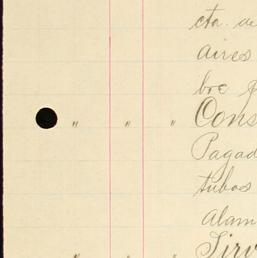 cta. de
aires
bre
" " " Cons
Pagad
tubos
alam
" " " Sirv